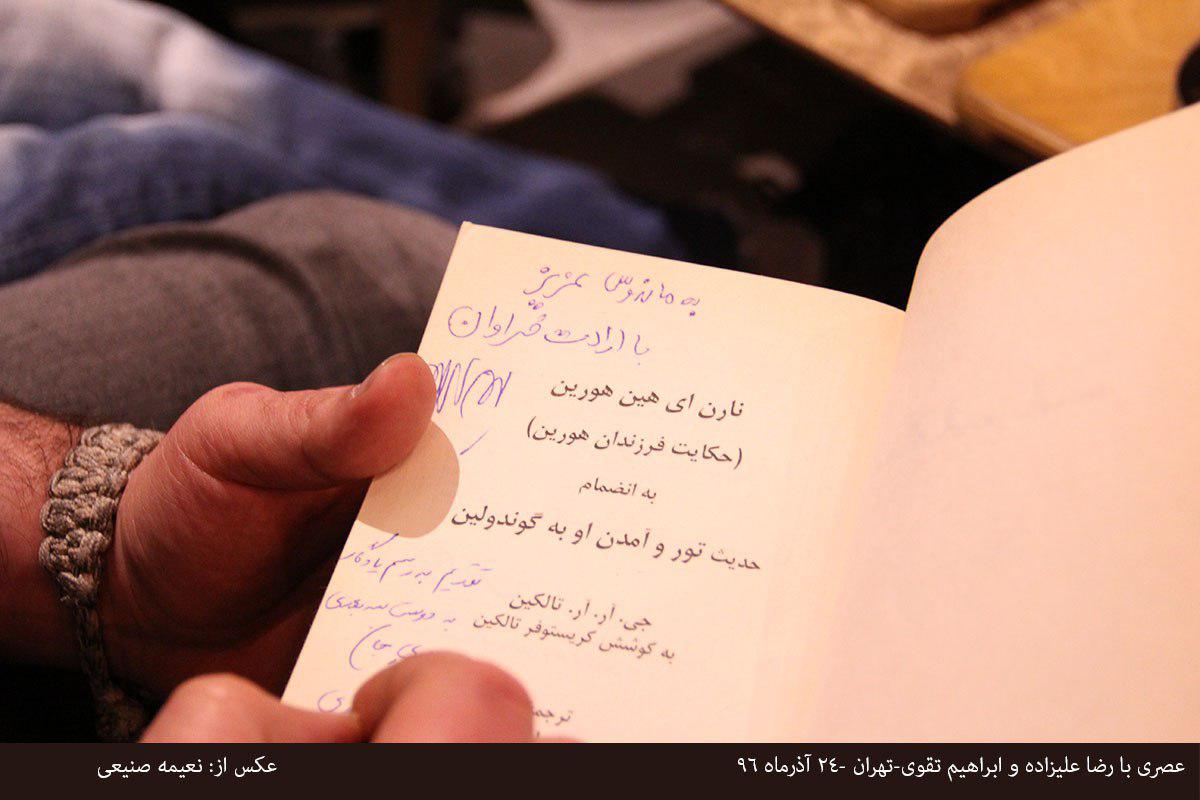 به مانوس عزیز
با ارادت فراوان
نارن ای هین هورین
(حکایت فرزندان هورین)
به انضمام
حدیث تور و آمدن او به گوندولین
تقدیم به رسم یادگار
جی. آر. آر. تالکین
به دوست
به کوشش کریستوفر تالکین
جان
عصری با رضا علیزاده و ابراهیم تقوی-تهران -٢٤ آذرماه ٩٦
عکس از: نعیمه صنیعی